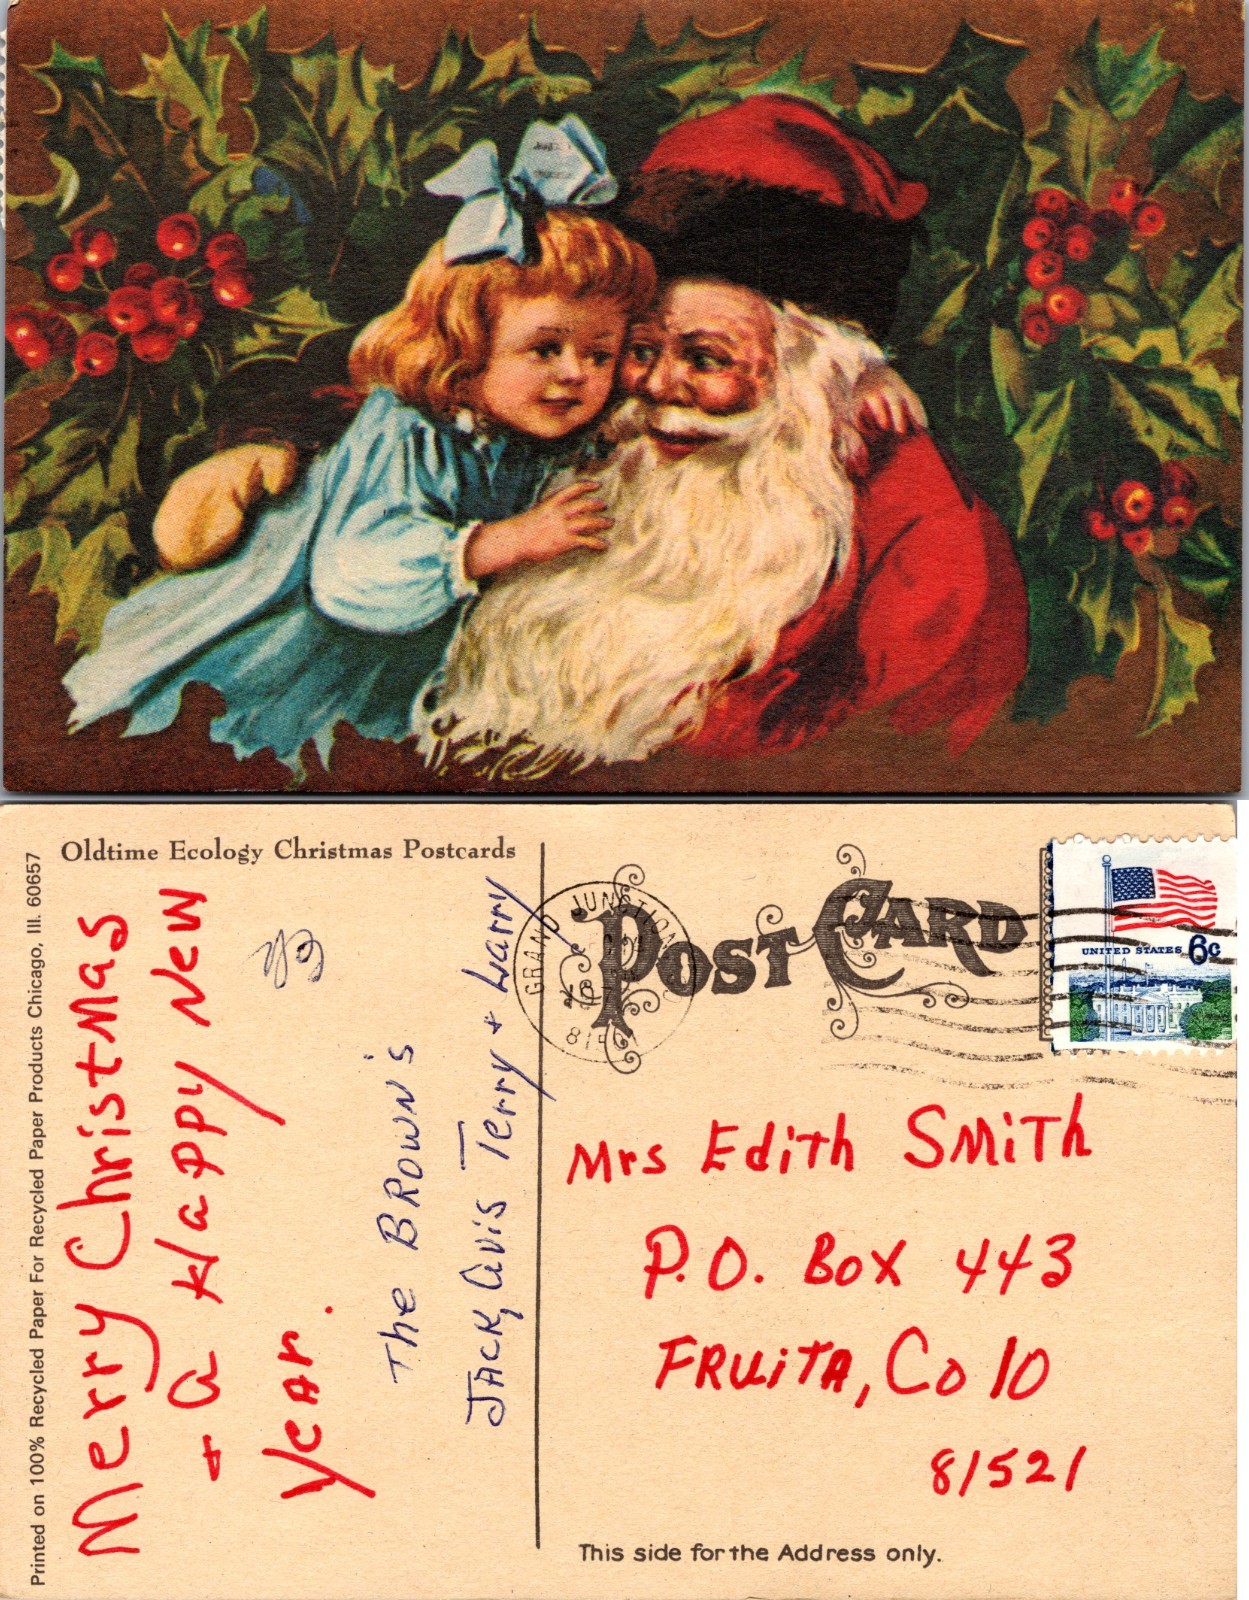 Oldtime Ecology Christmas Postcards
Printed on 100% Recycled Paper For Recycled Paper Products Chicago, Ill. 60657
Merry Christmas
+ a Happy New
Year.
The Brown's
Jack, Avis Terry + Larry
GRAND JUNCTION
POST CARD
UNITED STATES 6c
Mrs Edith Smith
P.O. Box 443
FRUiTA, Colo
81521
This side for the Address only.